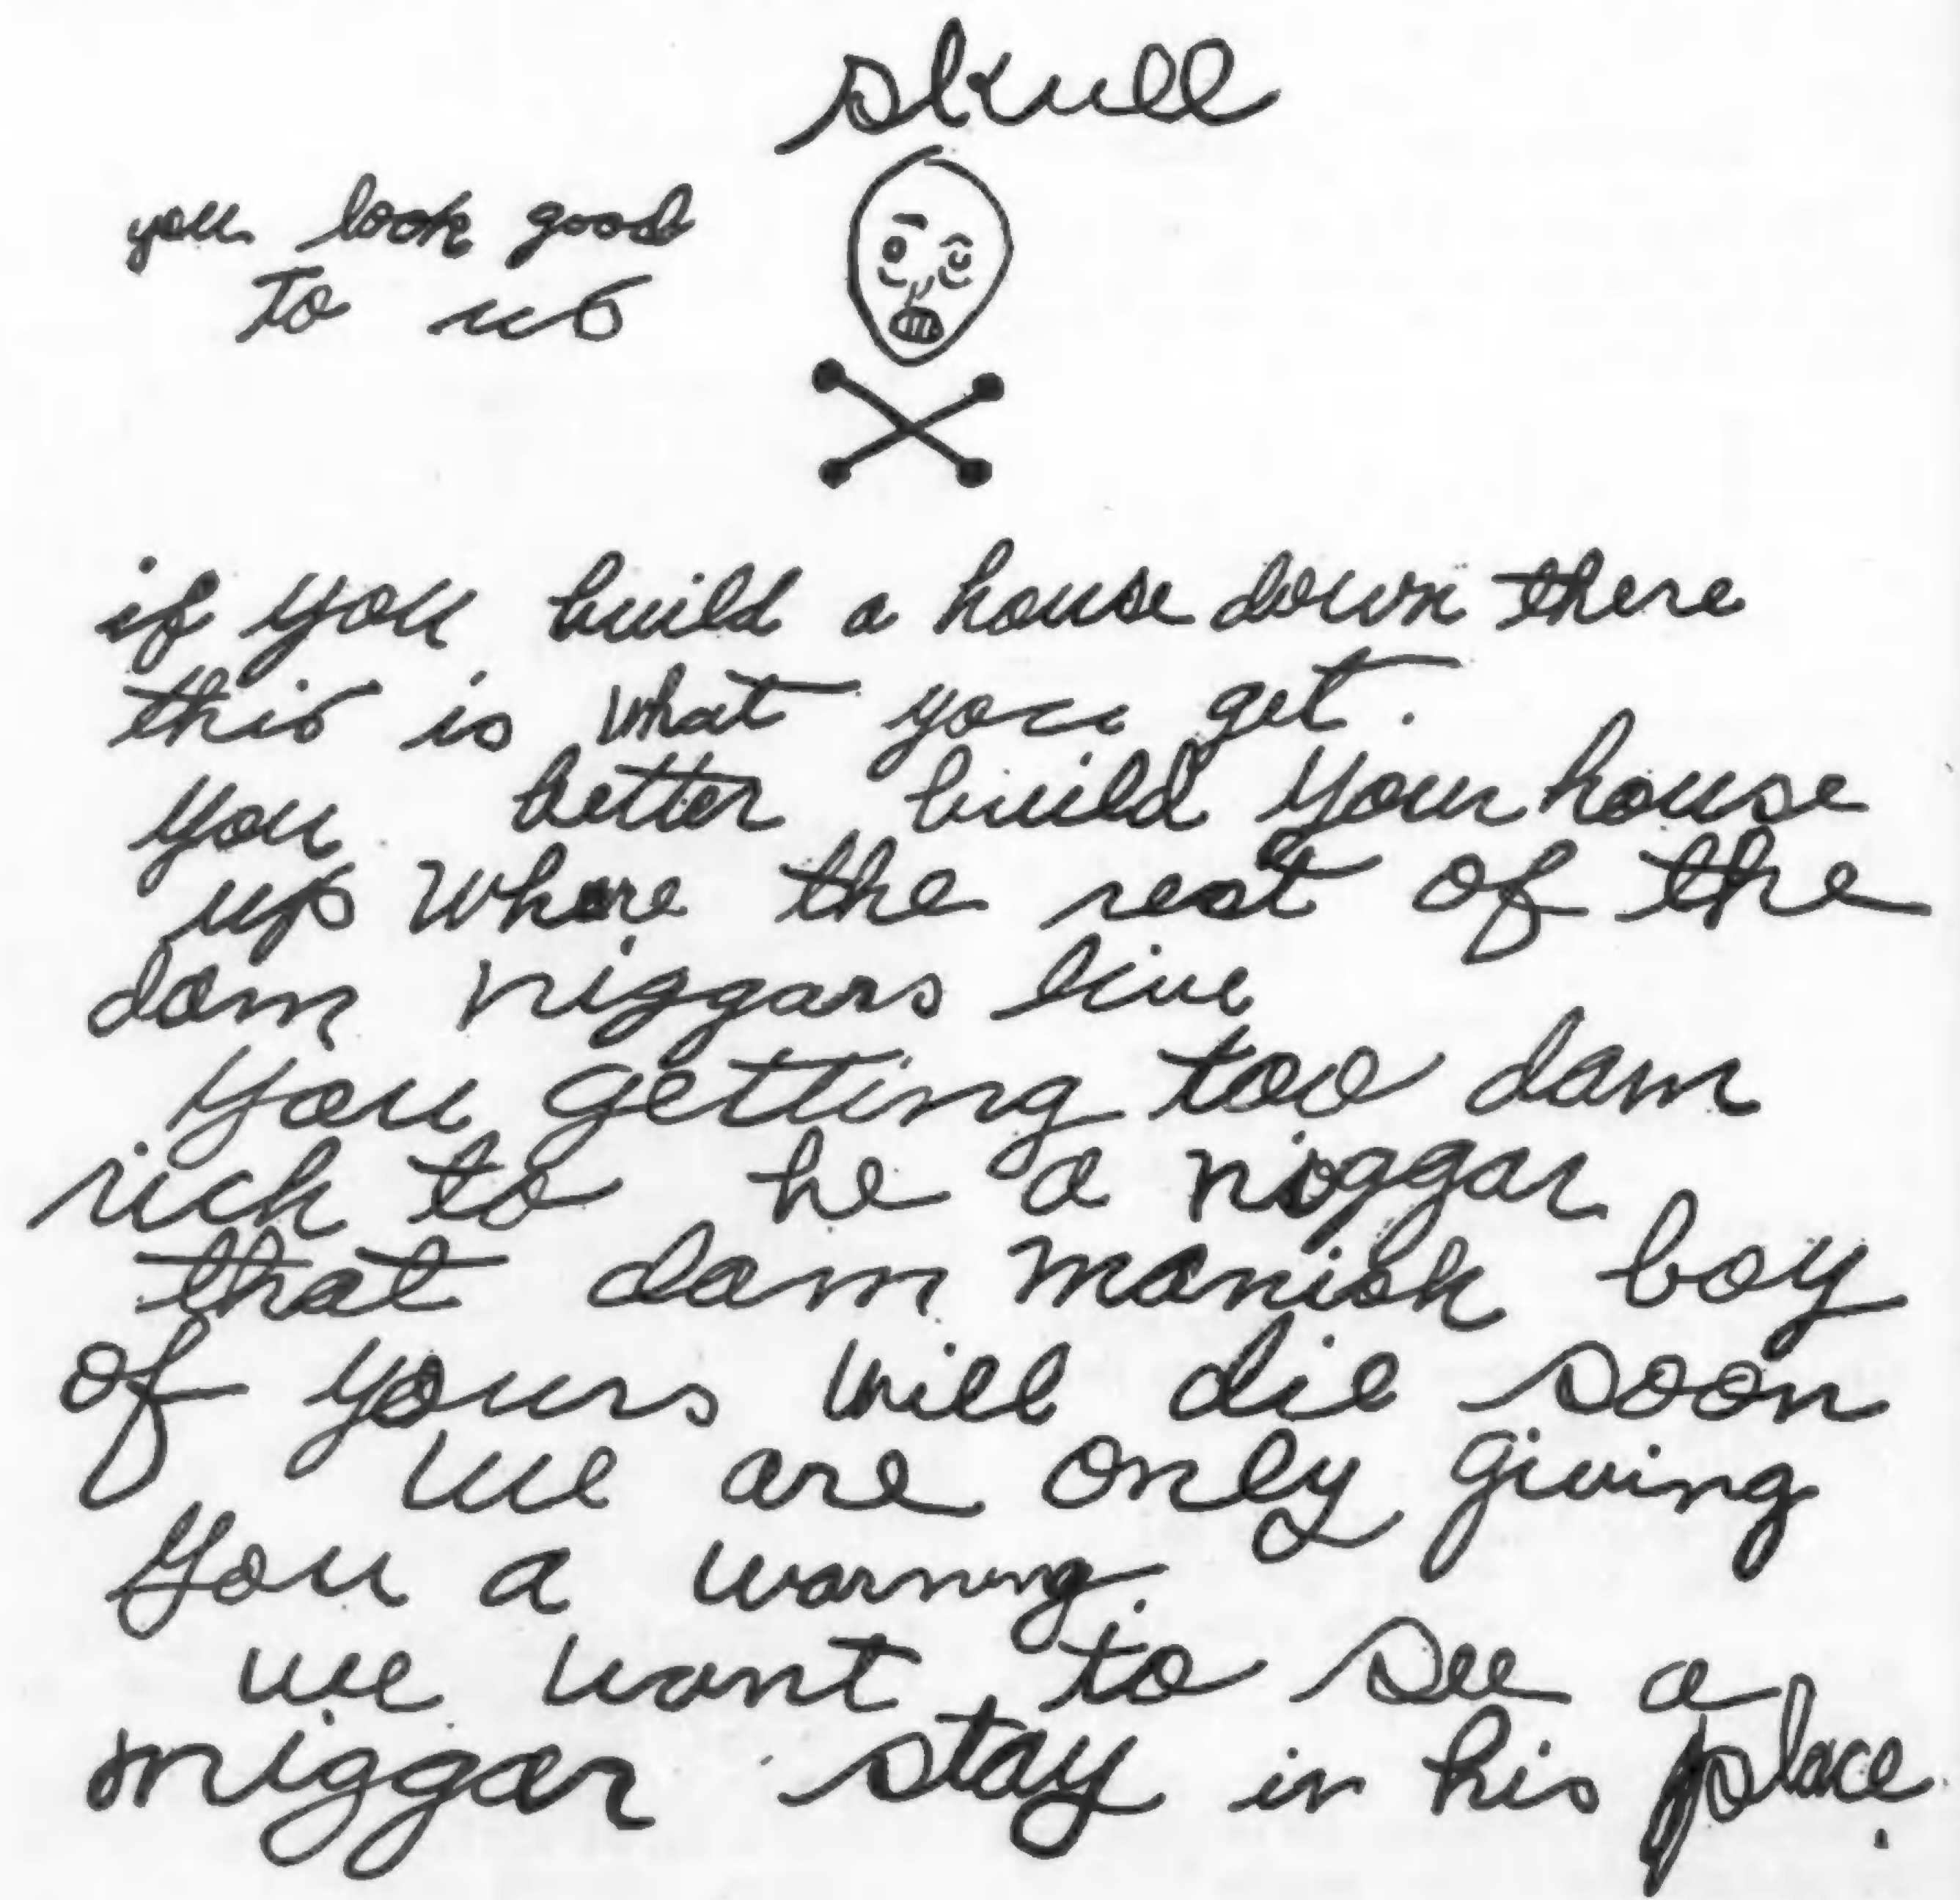 skull
you look good
to us
if you build a house down there
this is what you get.
you better build your house
up where the rest of the
dam niggars live
You getting too dam
rich to be a niggar
that dam manish boy
of yours will die soon
we are only giving
You a warning.
we want to see a
niggar stay in his place.